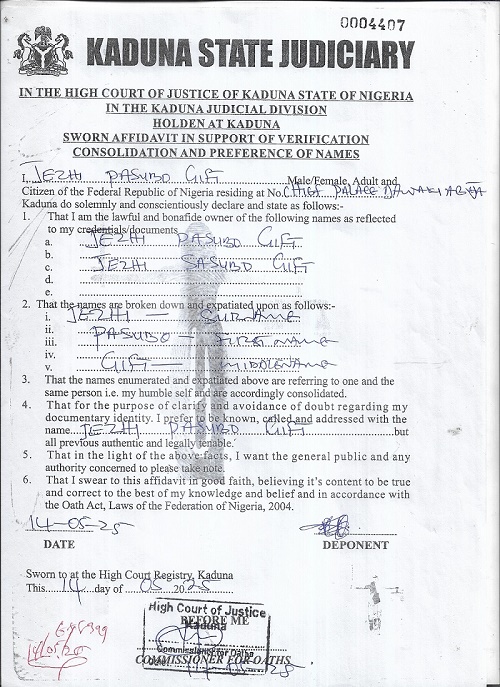 0004407
KADUNA STATE JUDICIARY
IN THE HIGH COURT OF JUSTICE OF KADUNA STATE OF NIGERIA
IN THE KADUNA JUDICIAL DIVISION
HOLDEN AT KADUNA
SWORN AFFIDAVIT IN SUPPORT OF VERIFICATION
CONSOLIDATION AND PREFERENCE OF NAMES
I, JEZHI DASUBO GIFT Male/Female, Adult and
Citizen of the Federal Republic of Nigeria residing at No. CHIEF PALACE DAWAKI ABUJA
Kaduna do solemnly and conscientiously declare and state as follows:-
1. That I am the lawful and bonafide owner of the following names as reflected
to my credentials/documents
a. JEZHI DASUBO GIFT
b.
c. JEZHI SASUBO GIFT
d.
e.
2. That the names are broken down and expatiated upon as follows:-
i. JEZHI — SURNAME
ii.
iii. DASUBO — FIRST NAME
iv.
v. GIFT — MIDDLENAME
3. That the names enumerated and expatiated above are referring to one and the
same person i.e. my humble self and are accordingly consolidated.
4. That for the purpose of clarity and avoidance of doubt regarding my
documentary identity. I prefer to be known, called and addressed with the
name JEZHI DASUBO GIFT but
all previous authentic and legally tenable.
5. That in the light of the above facts, I want the general public and any
authority concerned to please take note.
6. That I swear to this affidavit in good faith, believing it's content to be true
and correct to the best of my knowledge and belief and in accordance with
the Oath Act, Laws of the Federation of Nigeria, 2004.
14-05-25
DATE DEPONENT
Sworn to at the High Court Registry, Kaduna
This 14 day of 05 2025
High Court of Justice
Kaduna
BEFORE ME
Commissioner for Oaths
COMMISSIONER FOR OATHS